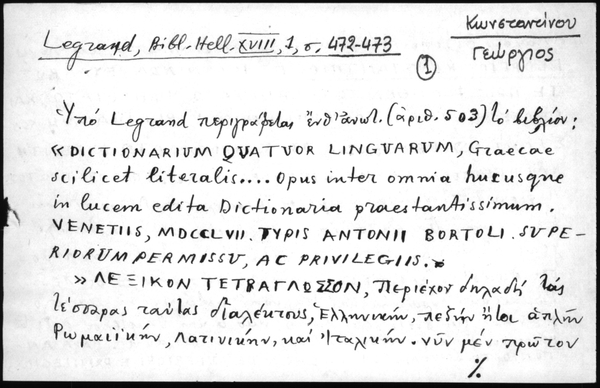 Κωνσταντίνου
Γεώργιος
Legrand, Bibl. Hell. XVIII, 1, σ. 472-473
1
Ὑπό Legrand περιγράφεται ἐνθ' ἀνωτ. (ἀριθ. 503) τό βιβλίον:
« DICTIONARIUM QUATUOR LINGUARUM, Graecae
scilicet literalis.... Opus inter omnia hucusque
in lucem edita Dictionaria praestantissimum.
VENETIIS, MDCCLVII. TYPIS ANTONII BORTOLI. SUPE-
RIORUM PERMISSU, AC PRIVILEGIIS.»
» ΛΕΞΙΚΟΝ ΤΕΤΒΑΓΛΩΣΣΟΝ, Περιέχον δηλαδή τάς
τέσσαρας ταύτας διαλέκτους, Ἑλληνικήν, πεζήν ἤτοι ἁπλῆν
Ρωμαιϊκήν, Λατινικήν, καί Ἰταλικήν. νῦν μέν πρῶτον
%